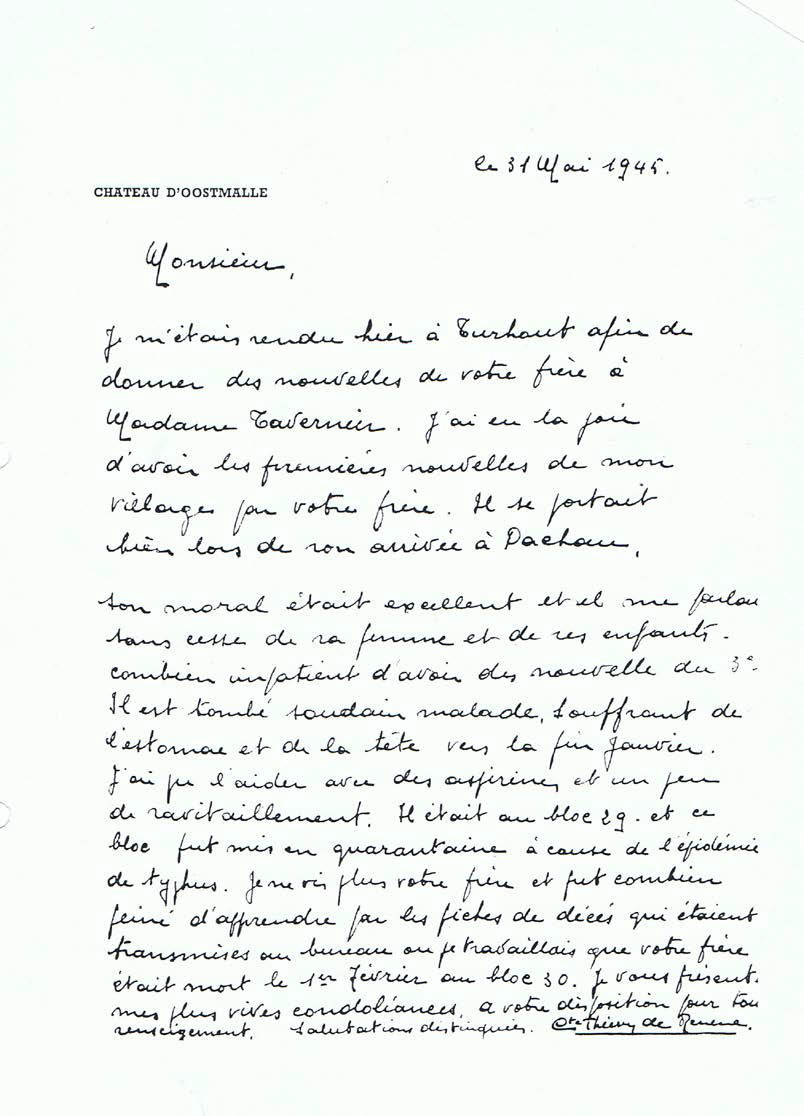 le 31 Mai 1945.
CHATEAU D'OOSTMALLE
Monsieur,
Je m'étais rendu hier à Turhout afin de
donner des nouvelles de votre frère à
Madame Tavernier. J'ai eu la joie
d'avoir les premières nouvelles de mon
village par votre frère. Il se portait
bien lors de son arrivée à Dachau,
son moral était excellent et il me parlau
sans cesse de sa femme et de ses enfants.
combien impatient d'avoir des nouvelle du 3e.
Il est tombé soudain malade, souffrant de
l'estomac et de la tête vers la fin Janvier.
J'ai pu l'aider avec des aspirines et un peu
de ravitaillement. Il était au bloc 29. et ce
bloc fut mis en quarantaine à cause de l'épidémie
de typhus. Je ne vis plus votre frère et fut combien
peiné d'apprendre par les fiches de décés qui étaient
transmises au bureau ou je travaillais que votre frère
était mort le 1er Février au bloc 30. Je vous présent.
mes plus vives condoléances, a votre disposition pour tou
renseigement. Salutations distinguées. Cte Thierry de Renesse.